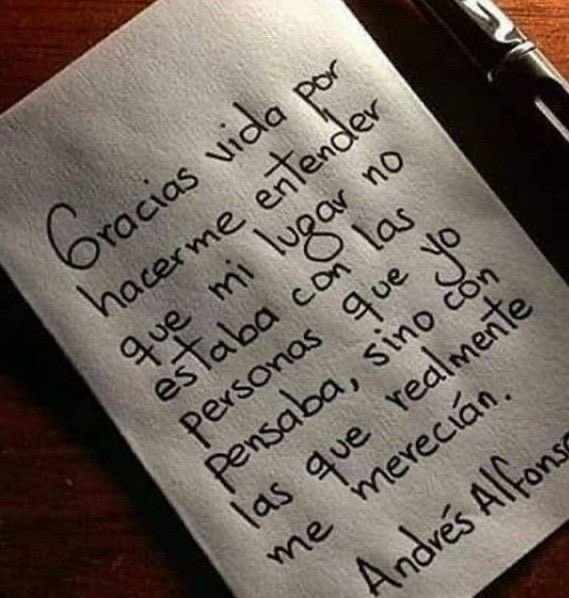 Gracias vida por
hacerme entender
que mi lugar no
estaba con las
personas que yo
pensaba, sino con
las que realmente
me merecían.
Andrés Alfonso